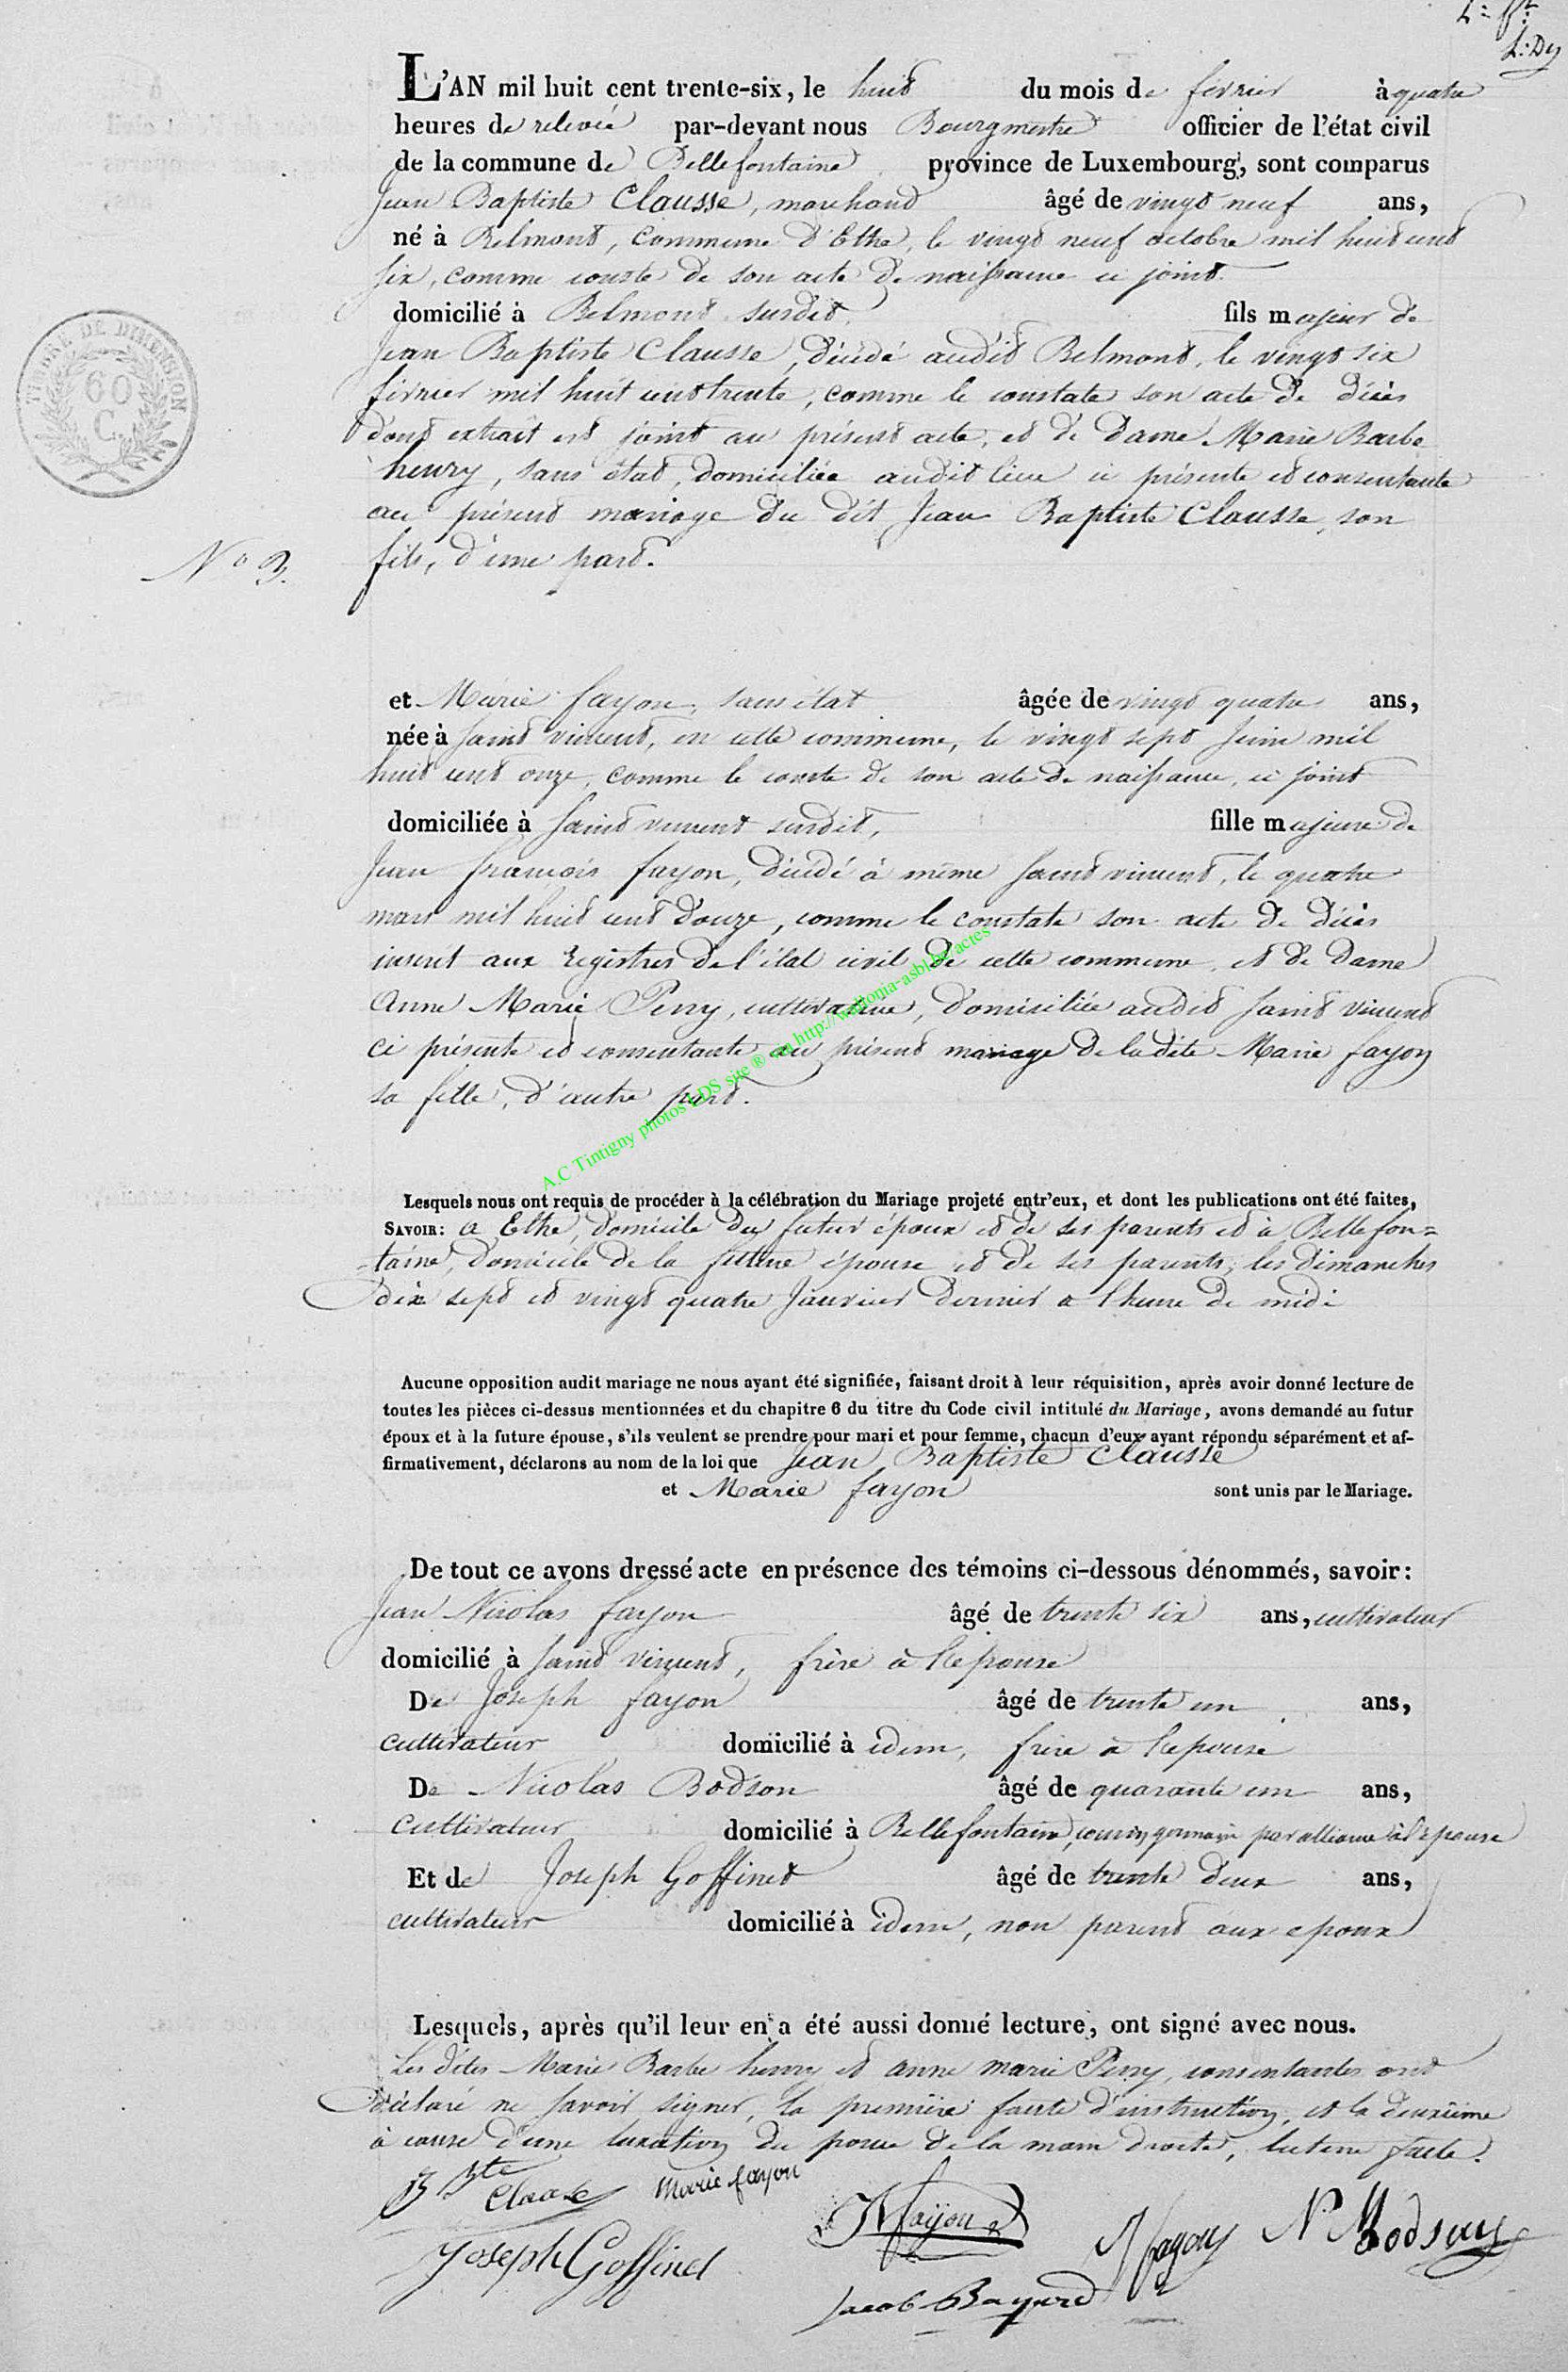 L'AN mil huit cent trente-six, le huit du mois de février à quatre
heures de relevée par-devant nous Bourgmestre officier de l'état civil
de la commune de Bellefontaine province de Luxembourg, sont comparus
Jean Baptiste Clausse, marchand âgé de vingt neuf ans,
né à Belmont, commune d'Ethe, le vingt neuf octobre mil huit cent
six, comme conste de son acte de naissance ci joint.
domicilié à Belmont susdit, fils majeur de
Jean Baptiste Clausse, décédé audit Belmont, le vingt six
février mil huit cent trente, comme le constate son acte de décès
dont extrait est joint au présent acte, et de dame Marie Barbe
henry, sans état, domiciliée audit lieu ci présente et consentante
au présent mariage du dit Jean Baptiste Clausse, son
fils, d'une part.
N° 3.
et Marie fayon, sans état âgée de vingt quatre ans,
née à Saint vincent, en cette commune, le vingt sept Juin mil
huit cent onze, comme le conste de son acte de naissance, ci joint
domiciliée à Saint vincent susdit, fille majeure de
Jean françois fayon, décédé à même Saint vincent, le quatre
mars mil huit cent douze, comme le constate son acte de décès
inscrit aux Registres de l'état civil de cette commune, et de dame
Anne Marie Perry, cultivatrice, domiciliée audit Saint vincent
ci présente et consentante au présent mariage de ladite Marie fayon
sa fille, d'autre part.
A.C Tintigny photos LDS site ® via http://wallonia-asbl.be/actes
Lesquels nous ont requis de procéder à la célébration du Mariage projeté entr'eux, et dont les publications ont été faites,
SAVOIR: à Ethe, domicile du futur époux et de ses parents et à Bellefon=
=taine, domicile de la future épouse et de ses parents, les dimanches
dix sept et vingt quatre Janvier dernier à l'heure de midi
Aucune opposition audit mariage ne nous ayant été signifiée, faisant droit à leur réquisition, après avoir donné lecture de
toutes les pièces ci-dessus mentionnées et du chapitre 6 du titre du Code civil intitulé du Mariage, avons demandé au futur
époux et à la future épouse, s'ils veulent se prendre pour mari et pour femme, chacun d'eux ayant répondu séparément et af-
firmativement, déclarons au nom de la loi que Jean Baptiste Clausse
et Marie fayon sont unis par le Mariage.
De tout ce avons dressé acte en présence des témoins ci-dessous dénommés, savoir:
Jean Nicolas fayon âgé de trente six ans, cultivateur
domicilié à Saint vincent, frère à l'épouse
De Joseph fayon âgé de trente un ans,
cultivateur domicilié à idem, frère à l'épouse
De Nicolas Bodson âgé de quarante un ans,
cultivateur domicilié à Bellefontaine, cousin germain par alliance à l'épouse
Et de Joseph Goffinet âgé de trente deux ans,
cultivateur domicilié à idem, non parent aux époux
Lesquels, après qu'il leur en a été aussi donné lecture, ont signé avec nous.
Les dites Marie Barbe henry et anne marie Perry, consentantes ont
déclaré ne savoir signer, la première faute d'instruction, et la deuxième
à cause d'une luxation du pouce de la main droite, lecture faite.
JBte Clausse Marie fayon
JN fayon J fayon N Bodson
Joseph Goffinet
Jacob Bayard
TIMBRE DE DIMENSION
60
C.